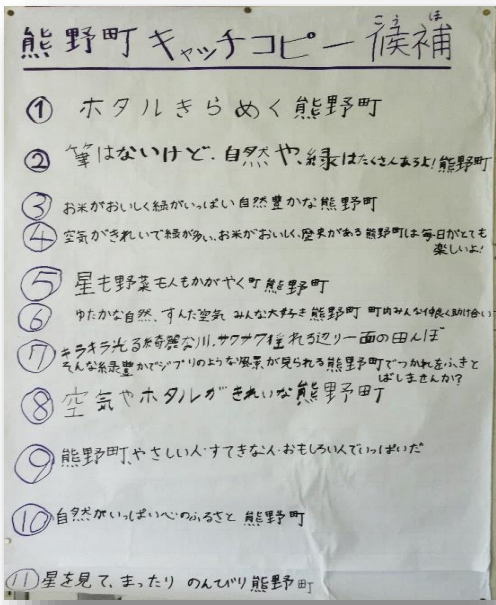 こう ほ
熊野町キャッチコピー候補
① ホタルきらめく熊野町
② 筆はないけど、自然や、緑はたくさんあるよ!熊野町
③ お米がおいしく緑がいっぱい自然豊かな熊野町
④ 空気がきれいで緑が多い、お米がおいしく、歴史がある熊野町は毎日がとても
楽しいよ!
⑤ 星も野菜も人もかがやく町熊野町
⑥ ゆたかな自然、すんだ空気 みんな大好き熊野町 町内みんな仲良く助け合い
⑦ キラキラ光る綺麗な川、サワサワ揺れる辺り一面の田んぼ
そんな緑豊かでジブリのような風景が見られる熊野町でつかれをふきと
ばしませんか?
⑧ 空気やホタルがきれいな熊野町
⑨ 熊野町、やさしい人・すてきな人・おもしろい人でいっぱいだ
⑩ 自然がいっぱい心のふるさと 熊野町
⑪ 星を見て、まったり のんびり熊野町